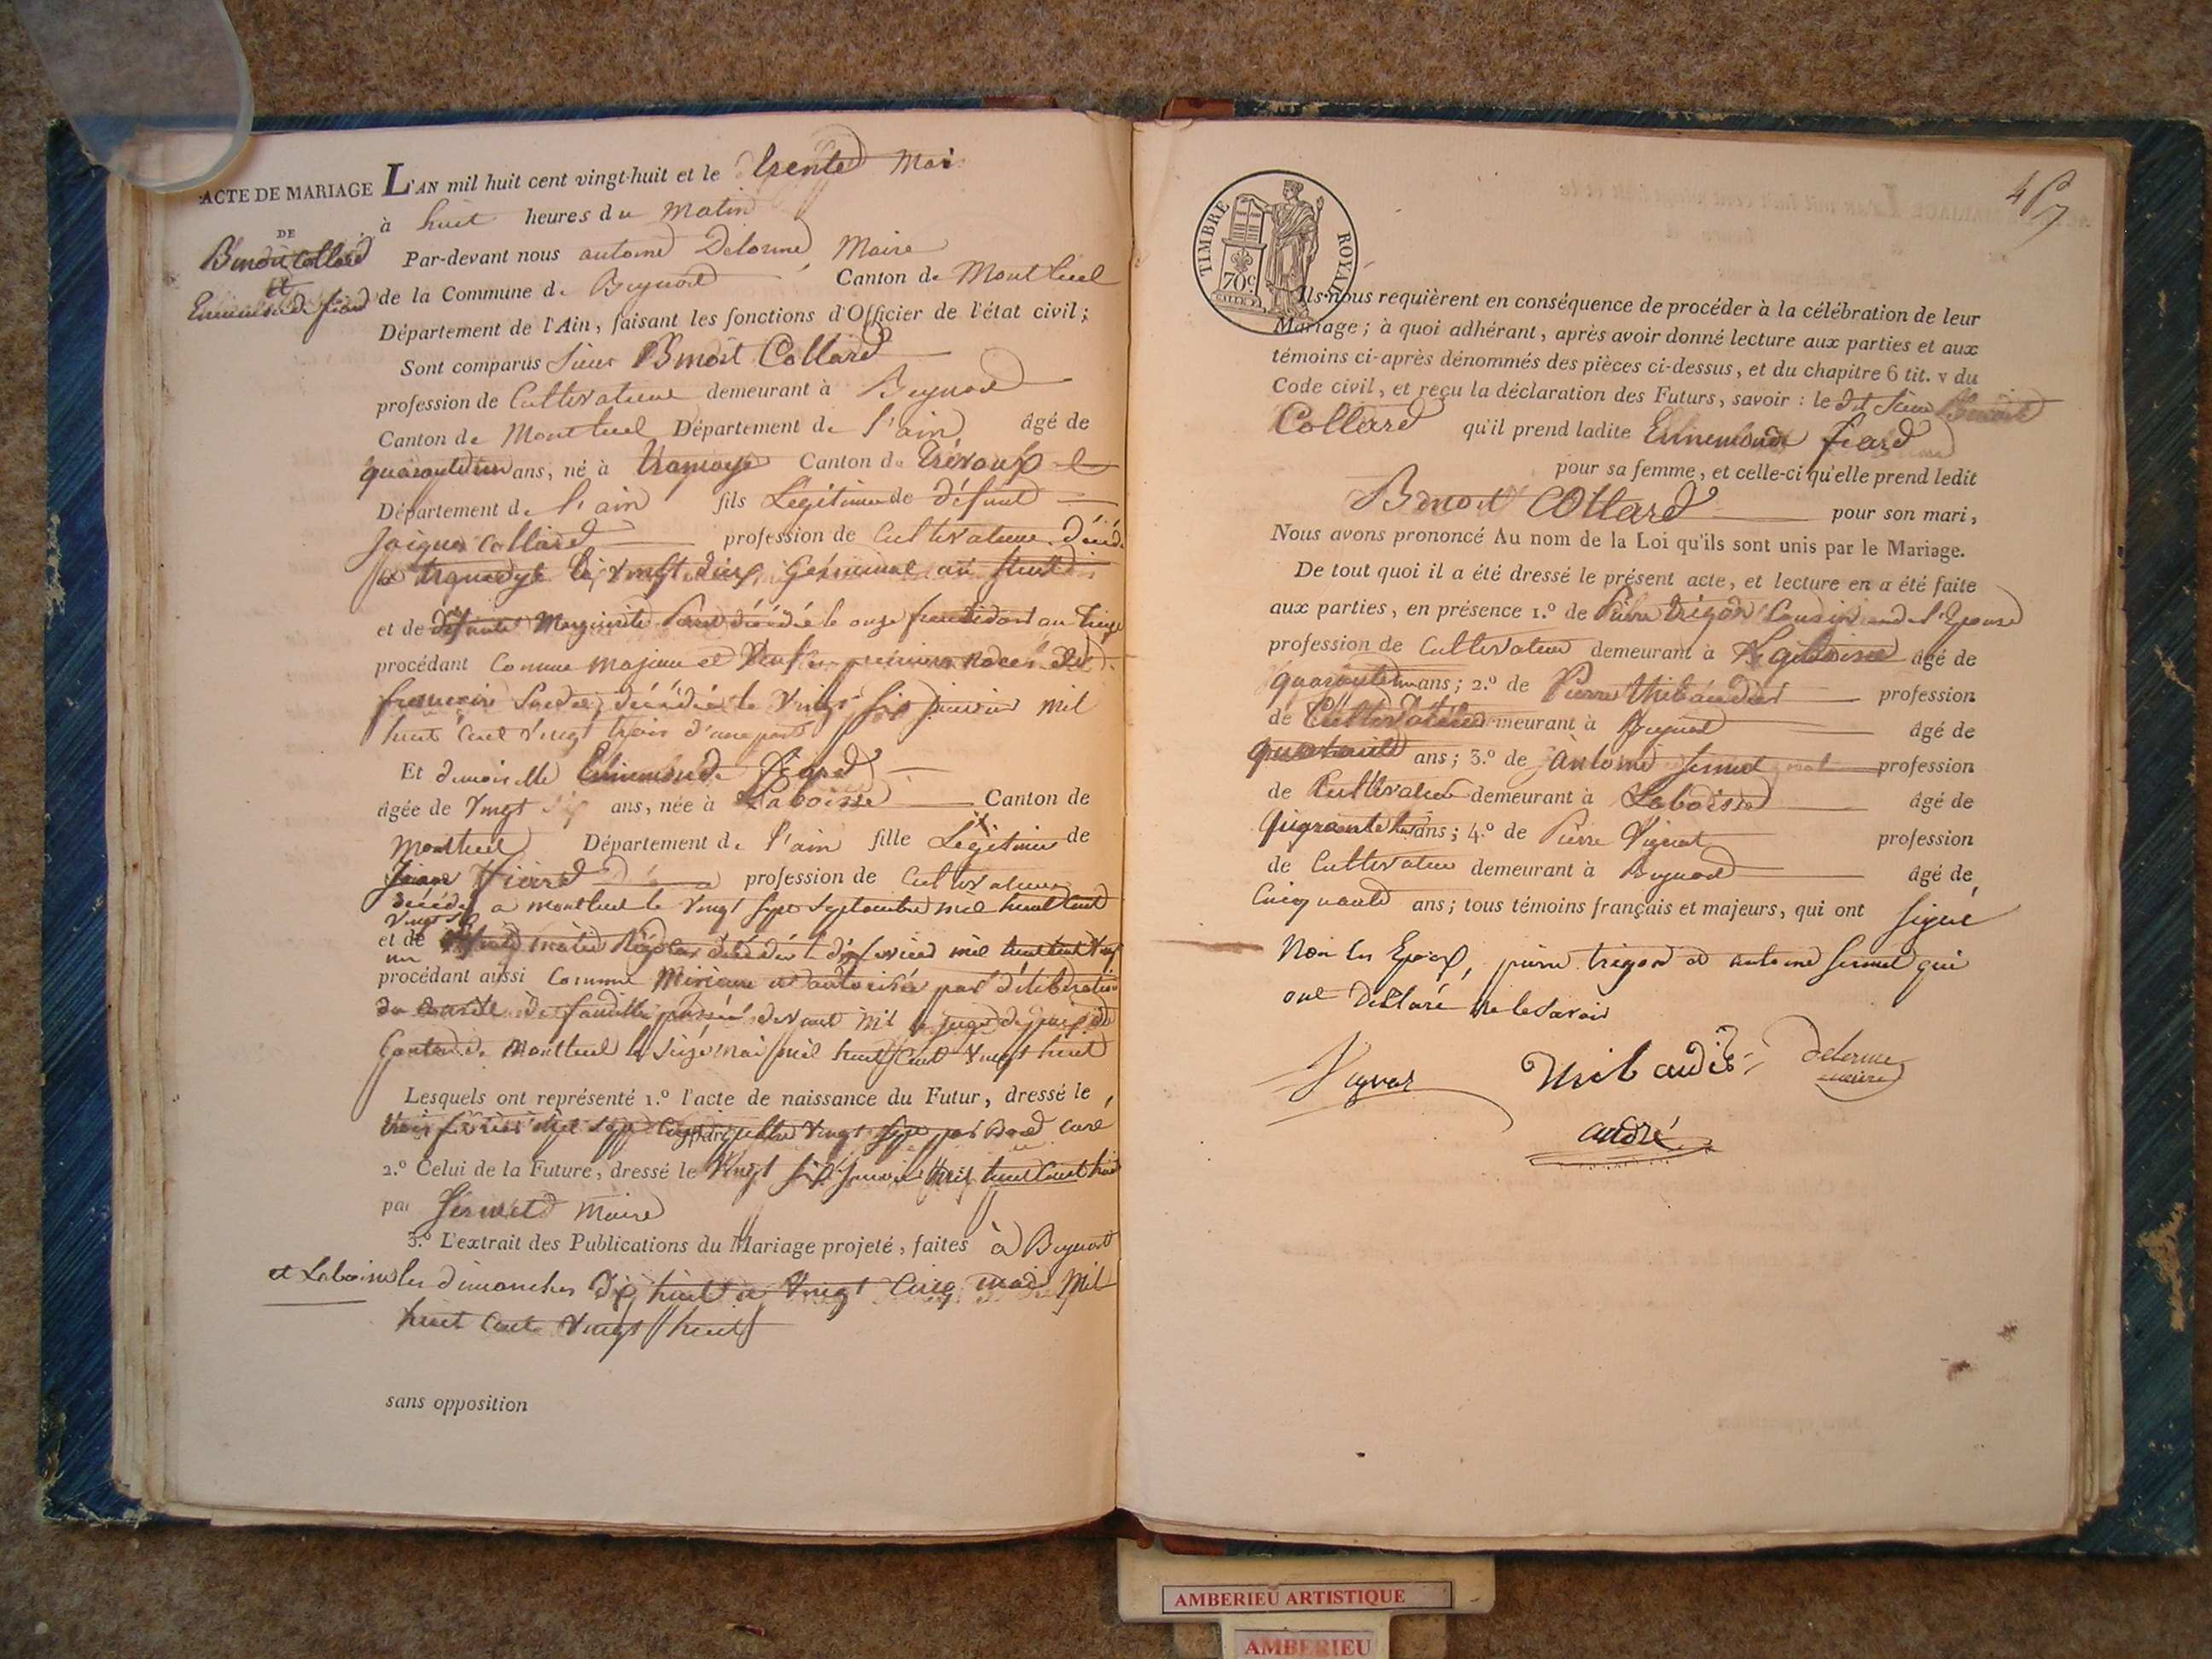 ACTE DE MARIAGE L'AN mil huit cent vingt-huit et le trente Mai
DE
à huit heures du Matin
Benoit Collard
et
Par-devant nous antoine Delorme Maire
de la Commune de Beynost Canton de Montluel
Département de l'Ain, faisant les fonctions d'Officier de l'état civil;
Sont comparus Sieur Benoit Collard
profession de Cultivateur demeurant à Beynost
Canton de Montluel Département de l'ain âgé de
quarante un ans, né à tramoye Canton de trévoux
Département de l'ain fils Légitime de défunt
Jaques Collard profession de Cultivateur décédé
a tramoye le vingt deux Germinal an huit
et de défunte Marguerite décédée le onze fructidor an treize
procédant comme majeur et Veuf en premieres noces de
françoise décédée le vingt six janvier mil
huit cent vingt trois d'une part
Et demoiselle Ennemonde fiard
âgée de vingt ans, née à Laboisse Canton de
Montluel Département de l'ain fille Légitime de
fiard profession de Cultivateur
décédé a montluel le vingt sept Septembre mil huit cent
vingt
et de décédée le dix mil huit cent vingt
un
procédant aussi comme Mineure et autorisée par délibération
du conseil de famille passée devant Mr le juge de paix du
Canton de Montluel le seize mai mil huit cent vingt huit
Lesquels ont représenté 1.º l'acte de naissance du Futur, dressé le
trois février mil sept cent quatre vingt sept par curé
2.º Celui de la Future, dressé le vingt six janvier mil huit cent huit
par Sermet Maire
3.º L'extrait des Publications du Mariage projeté, faites à Beynost
et Laboisse les dimanches dix huit et vingt cinq mai Mil
huit cent vingt huit
sans opposition
TIMBRE ROYAL
70c.
Ils nous requièrent en conséquence de procéder à la célébration de leur
Mariage; à quoi adhérant, après avoir donné lecture aux parties et aux
témoins ci-après dénommés des pièces ci-dessus, et du chapitre 6 tit. v du
Code civil, et reçu la déclaration des Futurs, savoir: le dit Sieur Benoit
Collard qu'il prend ladite Ennemonde fiard
pour sa femme, et celle-ci qu'elle prend ledit
Benoit Collard pour son mari,
Nous avons prononcé Au nom de la Loi qu'ils sont unis par le Mariage.
De tout quoi il a été dressé le présent acte, et lecture en a été faite
aux parties, en présence 1.º de Pierre trigon Cousin de l'Epouse
profession de Cultivateur demeurant à âgé de
ans; 2.º de Pierre thibaudier profession
de Cultivateur demeurant à Beynost âgé de
quarante ans; 3.º de Antoine Sermet profession
de Cultivateur demeurant à Laboisse âgé de
quarante ans; 4.º de Pierre Vignat profession
de Cultivateur demeurant à Beynost âgé de
Cinquante ans; tous témoins français et majeurs, qui ont signé
Non les Epoux, pierre trigon et antoine Sermet qui
ont déclaré ne le savoir
Vignat thibaudier Delorme
maire
andré
AMBERIEU ARTISTIQUE
AMBERIEU